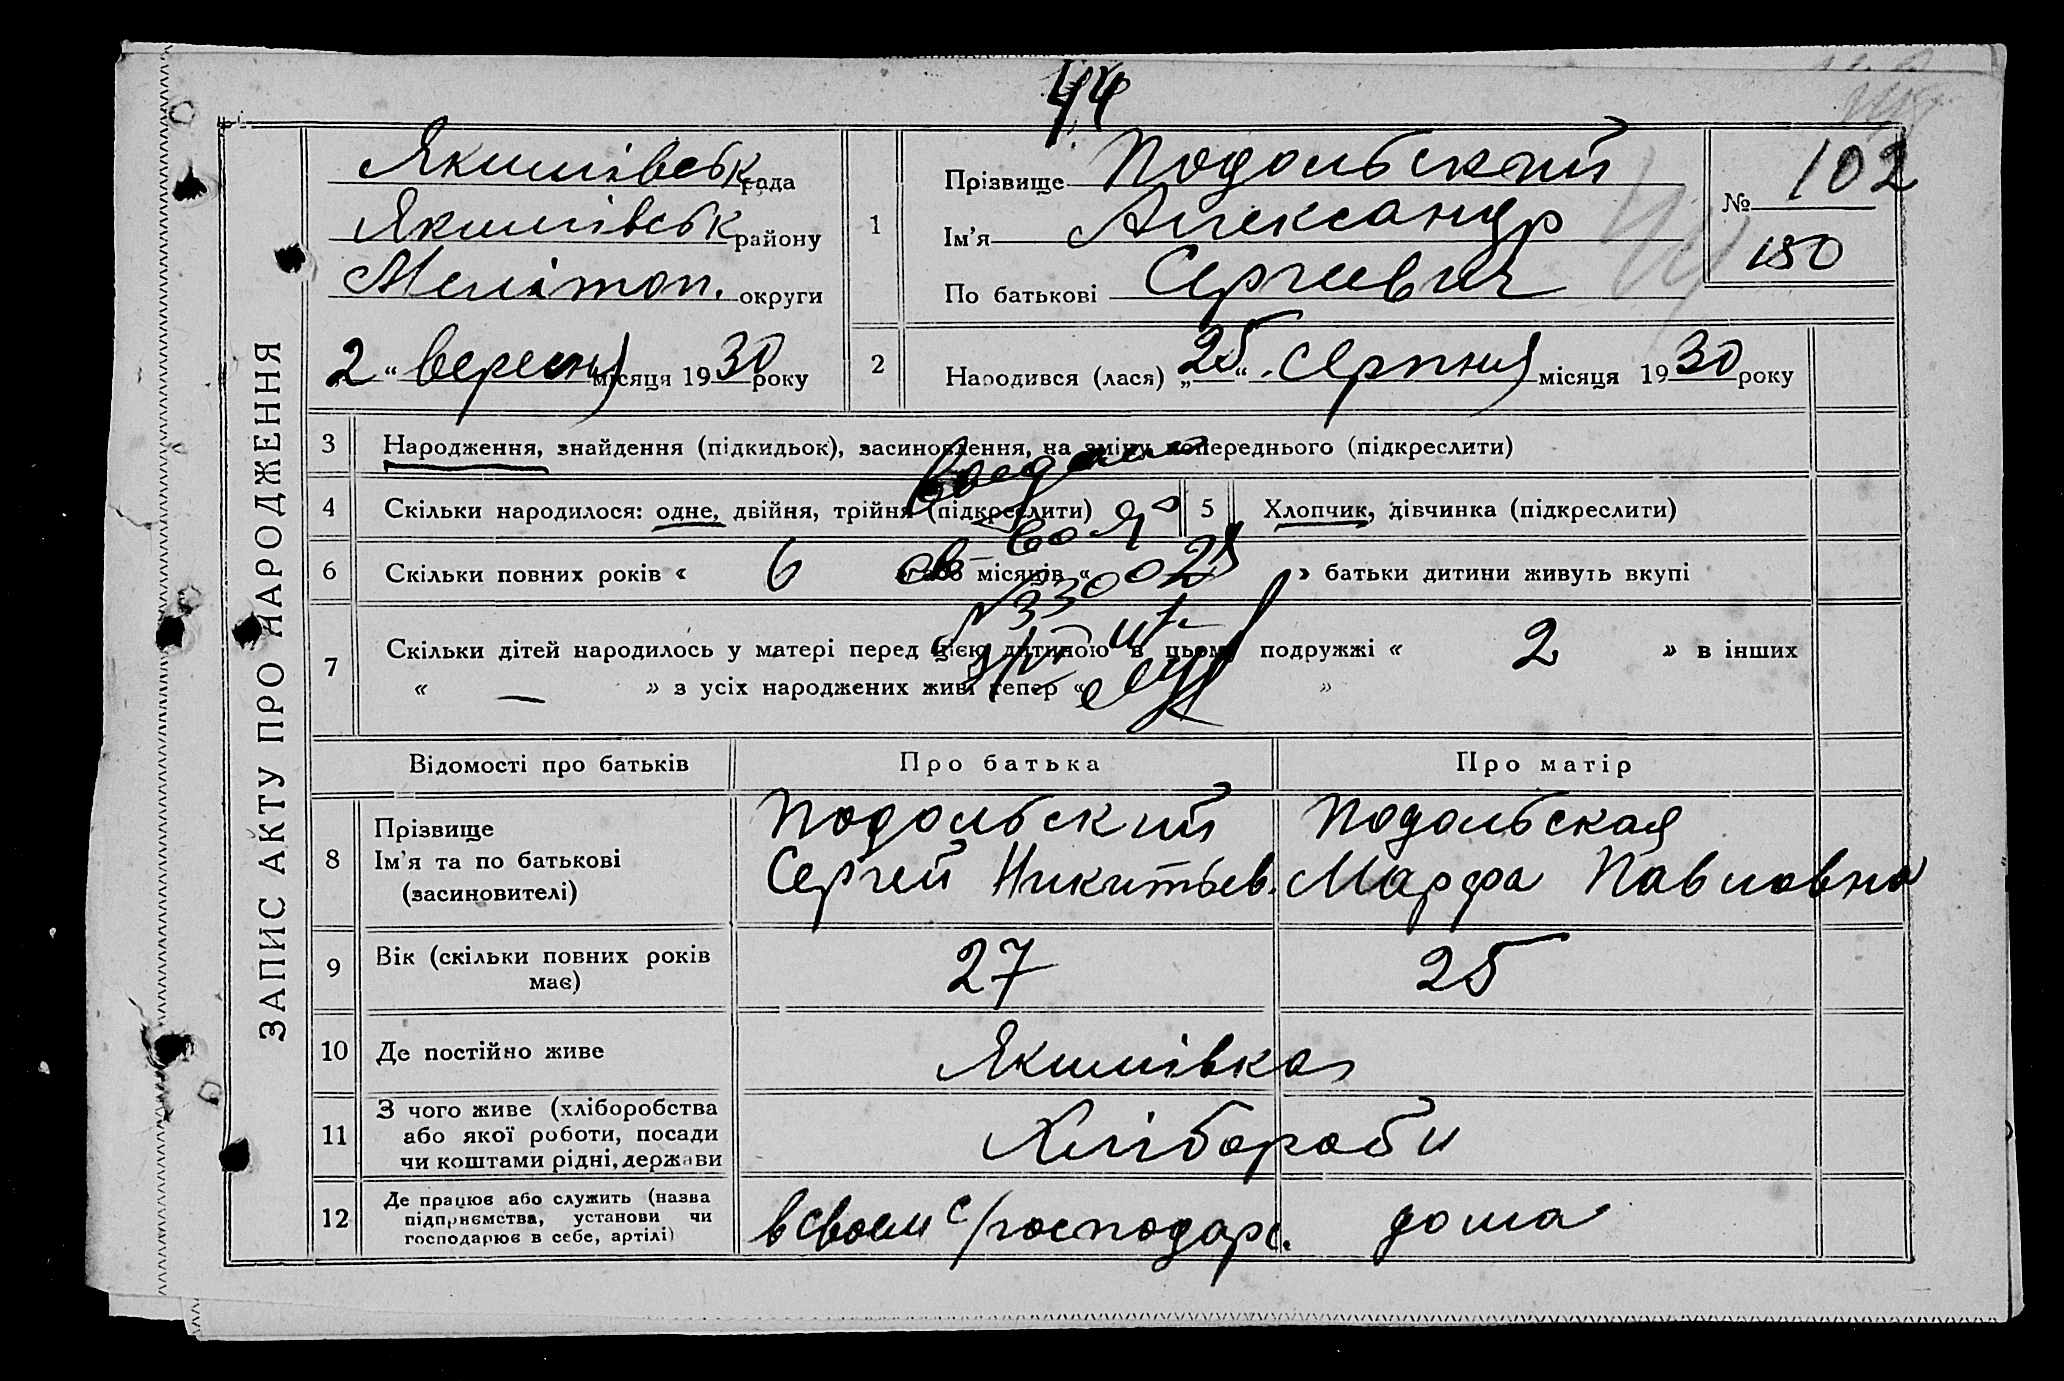 44
ЗАПИС АКТУ ПРО НАРОДЖЕННЯ
Якимівськ рада
Якимівськ району
Мелітоп. округи
2 " вересня місяця 1930 року
1
Прізвище Подольский
Ім'я Александр
По батькові Сергеевич
№ 102
150
2
Народився (лася) „25“ серпня місяця 1930 року
3 Народження, знайдення (підкидьок), засиновлення, на зміну попереднього (підкреслити)
4 Скільки народилося: одне, двійня, трійня (підкреслити) 5 Хлопчик, дівчинка (підкреслити)
6 Скільки повних років « 6 » або місяців « » батьки дитини живуть вкупі
7 Скільки дітей народилось у матері перед цією дитиною в цьому подружжі « 2 » в інших
« — » з усіх народжених живі тепер « »
Відомості про батьків Про батька Про матір
8 Прізвище
Ім'я та по батькові
(засиновителі)
Подольский
Сергей Никитьев.
Подольская
Марфа Павловна
9 Вік (скільки повних років
має)
27 25
10 Де постійно живе Якимівка
11 З чого живе (хліборобства
або якої роботи, посади
чи коштами рідні, держави
Хлібороби
12 Де працює або служить (назва
підприємства, установи чи
господарює в себе, артілі)
в своем с/господарс. дома